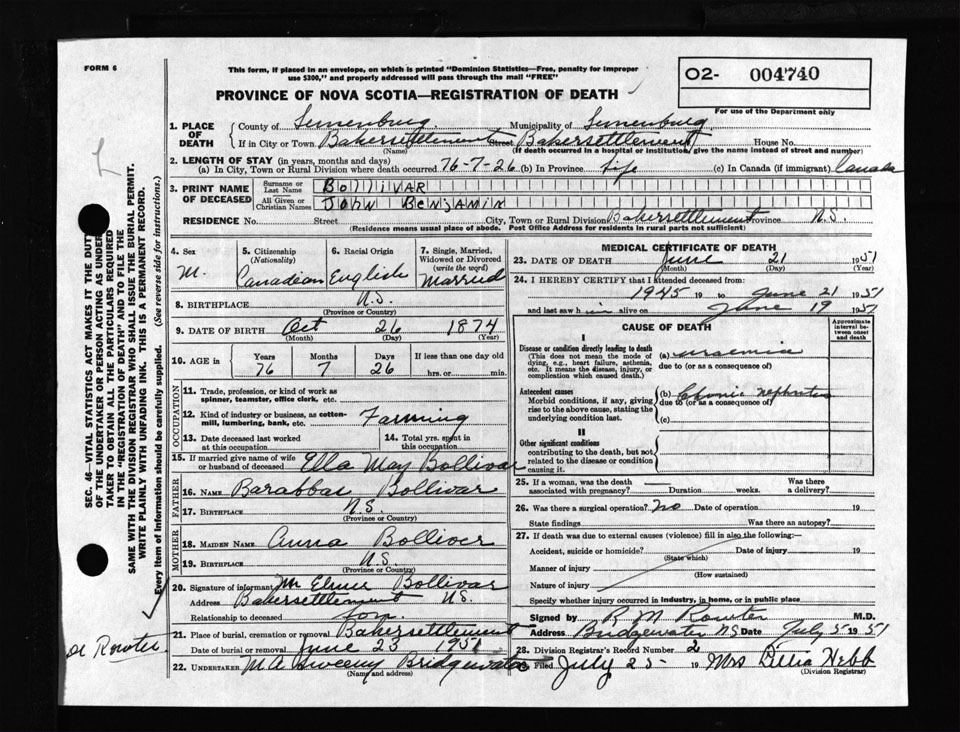 FORM 6
This form, if placed in an envelope, on which is printed "Dominion Statistics—Free, penalty for improper
use $300," and properly addressed will pass through the mail "FREE"
O2- 004740
For use of the Department only
PROVINCE OF NOVA SCOTIA—REGISTRATION OF DEATH
1. PLACE OF DEATH
County of Lunenburg. Municipality of Lunenburg.
If in City or Town Bakersettlement Street Bakersettlement House No.
(Name) (If death occurred in a hospital or institution, give the name instead of street and number)
2. LENGTH OF STAY (in years, months and days)
(a) In City, Town or Rural Division where death occurred 76-7-26 (b) In Province life (c) In Canada (if immigrant) Canada
3. PRINT NAME OF DECEASED
Surname or Last Name BOLLIVAR
All Given or Christian Names JOHN BENJAMIN
RESIDENCE No. Street City, Town or Rural Division Bakersettlement Province N.S.
(Residence means usual place of abode. Post Office Address for residents in rural parts not sufficient)
4. Sex M.
5. Citizenship (Nationality) Canadian
6. Racial Origin English
7. Single, Married, Widowed or Divorced (write the word) Married
8. BIRTHPLACE N.S.
(Province or Country)
9. DATE OF BIRTH Oct 26 1874
(Month) (Day) (Year)
10. AGE in Years 76 Months 7 Days 26 If less than one day old hrs. or min.
OCCUPATION
11. Trade, profession, or kind of work as
spinner, teamster, office clerk, etc.
12. Kind of industry or business, as cotton-
mill, lumbering, bank, etc. Farming
13. Date deceased last worked
at this occupation
14. Total yrs. spent in
this occupation
15. If married give name of wife
or husband of deceased Ella May Bollivar
FATHER
16. NAME Barabbas Bollivar
17. BIRTHPLACE N.S.
(Province or Country)
MOTHER
18. MAIDEN NAME Anna Bolliver
19. BIRTHPLACE N.S.
(Province or Country)
20. Signature of informant Mr Elmer Bollivar
Address Bakersettlement N.S.
Relationship to deceased son.
21. Place of burial, cremation or removal Bakersettlement
Date of burial or removal June 23 1951
22. UNDERTAKER M A Sweeny Bridgewater
(Name and address)
MEDICAL CERTIFICATE OF DEATH
23. DATE OF DEATH June 21 1951
(Month) (Day) (Year)
24. I HEREBY CERTIFY that I attended deceased from:
1945 to June 21 1951
and last saw him alive on June 19 1951
CAUSE OF DEATH
Approximate interval between onset and death
I
Disease or condition directly leading to death
(This does not mean the mode of
dying, e.g., heart failure, asthenia,
etc. It means the disease, injury, or
complication which caused death.)
(a) uraemia
due to (or as a consequence of)
Antecedent causes
Morbid conditions, if any, giving
rise to the above cause, stating the
underlying condition last.
(b) Chronic nephritis
due to (or as a consequence of)
(c)
II
Other significant conditions
contributing to the death, but not
related to the disease or condition
causing it.
25. If a woman, was the death
associated with pregnancy? Duration weeks. Was there a delivery?
26. Was there a surgical operation? no Date of operation 19
State findings Was there an autopsy?
27. If death was due to external causes (violence) fill in also the following:—
Accident, suicide or homicide? Date of injury 19
(State which)
Manner of injury
(How sustained)
Nature of injury
Specify whether injury occurred in industry, in home, or in public place
Signed by R M Rowter M.D.
Address Bridgewater N.S Date July 5 1951
28. Division Registrar's Record Number 2
Filed July 25- 19 Mrs Lillia Hebb
(Division Registrar)
SEC. 46—VITAL STATISTICS ACT MAKES IT THE DUTY
OF THE UNDERTAKER OR PERSON ACTING AS UNDER-
TAKER TO OBTAIN ALL THE PARTICULARS REQUIRED
IN THE "REGISTRATION OF DEATH" AND TO FILE THE
SAME WITH THE DIVISION REGISTRAR WHO SHALL ISSUE THE BURIAL PERMIT.
WRITE PLAINLY WITH UNFADING INK. THIS IS A PERMANENT RECORD.
Every item of information should be carefully supplied. (See reverse side for instructions.)
Rowter